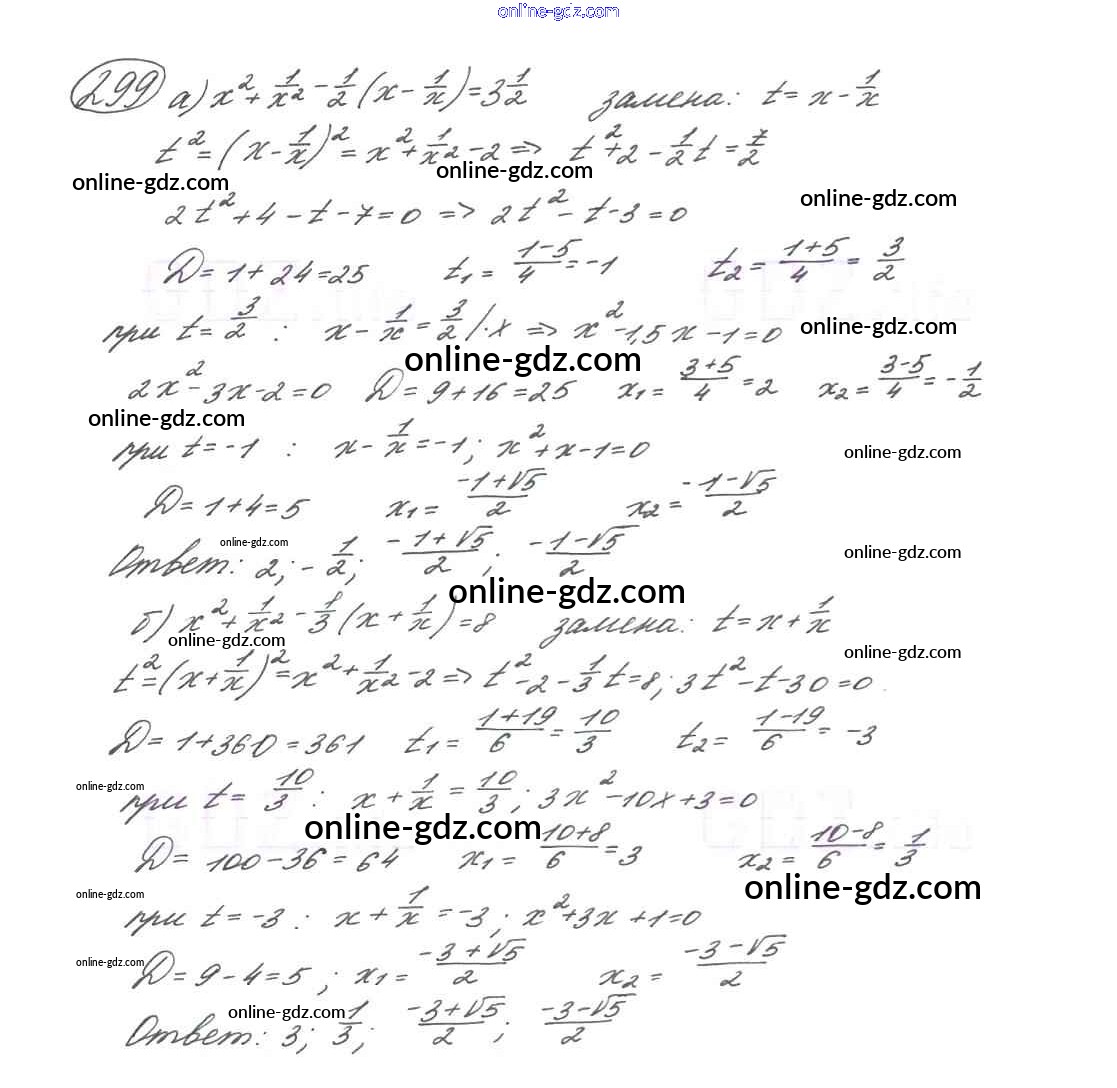 online-gdz.com
299 а) x² + 1/x² - 1/2 (x - 1/x) = 3 1/2 замена: t = x - 1/x
t² = (x - 1/x)² = x² + 1/x² - 2 => t² + 2 - 1/2 t = 7/2
online-gdz.com online-gdz.com online-gdz.com
2t² + 4 - t - 7 = 0 => 2t² - t - 3 = 0
D = 1 + 24 = 25 t₁ = (1-5)/4 = -1 t₂ = (1+5)/4 = 3/2
при t = 3/2 : x - 1/x = 3/2 /·x => x² - 1,5x - 1 = 0 online-gdz.com
online-gdz.com
2x² - 3x - 2 = 0 D = 9 + 16 = 25 x₁ = (3+5)/4 = 2 x₂ = (3-5)/4 = -1/2
online-gdz.com
при t = -1 : x - 1/x = -1; x² + x - 1 = 0 online-gdz.com
D = 1 + 4 = 5 x₁ = (-1+√5)/2 x₂ = (-1-√5)/2
online-gdz.com online-gdz.com
Ответ: 2; -1/2; (-1+√5)/2; (-1-√5)/2
online-gdz.com
б) x² + 1/x² - 1/3 (x + 1/x) = 8 замена: t = x + 1/x
online-gdz.com online-gdz.com
t² = (x + 1/x)² = x² + 1/x² - 2 => t² - 2 - 1/3 t = 8; 3t² - t - 30 = 0
D = 1 + 360 = 361 t₁ = (1+19)/6 = 10/3 t₂ = (1-19)/6 = -3
online-gdz.com
при t = 10/3 : x + 1/x = 10/3; 3x² - 10x + 3 = 0
online-gdz.com
D = 100 - 36 = 64 x₁ = (10+8)/6 = 3 x₂ = (10-8)/6 = 1/3
online-gdz.com online-gdz.com
при t = -3 : x + 1/x = -3; x² + 3x + 1 = 0
online-gdz.com
D = 9 - 4 = 5; x₁ = (-3+√5)/2 x₂ = (-3-√5)/2
online-gdz.com
Ответ: 3; 1/3; (-3+√5)/2; (-3-√5)/2